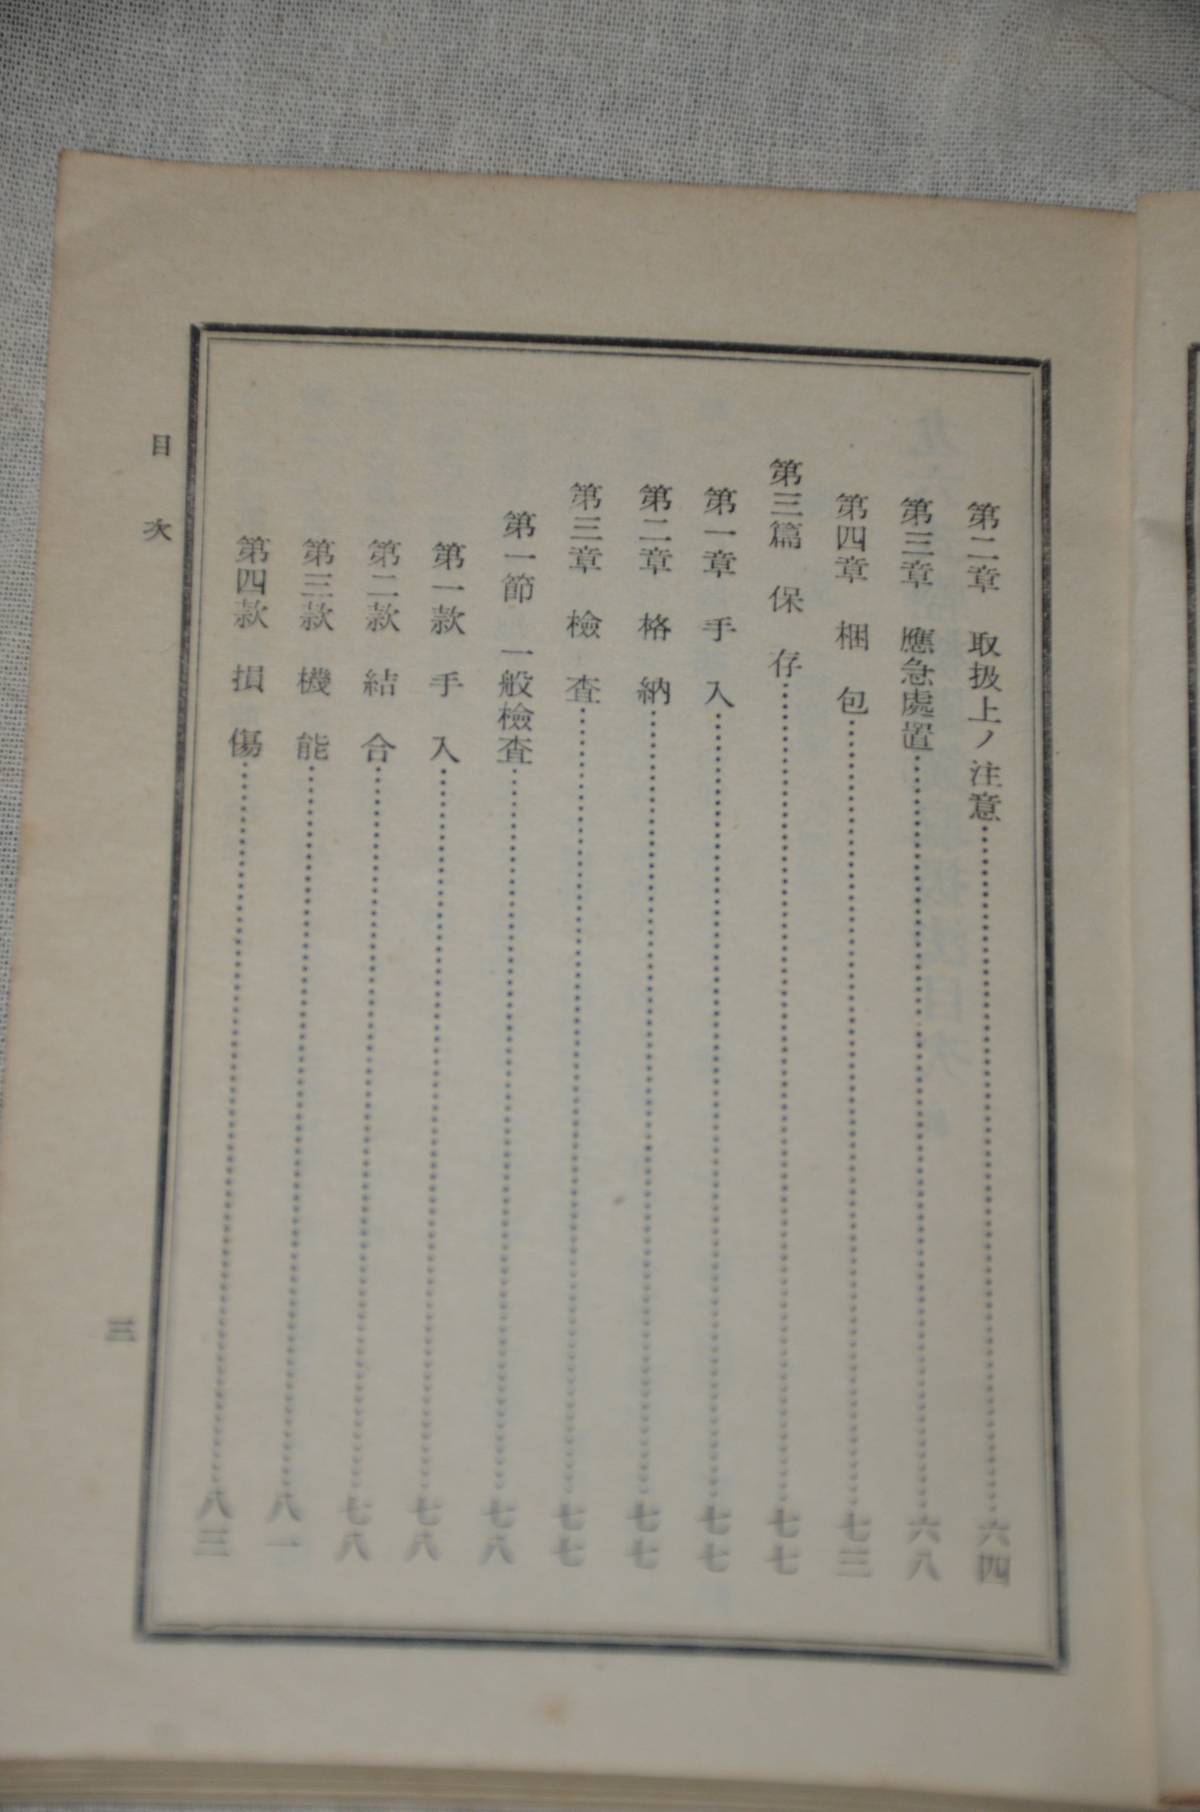 第二章　取扱上ノ注意……六四
第三章　應急處置……六八
第四章　梱包……七三
第三篇　保存……七七
第一章　手入……七七
第二章　格納……七七
第三章　檢査……七七
第一節　一般檢査……七八
第一款　手入……七八
第二款　結合……七八
第三款　機能……八一
第四款　損傷……八三
目次
三